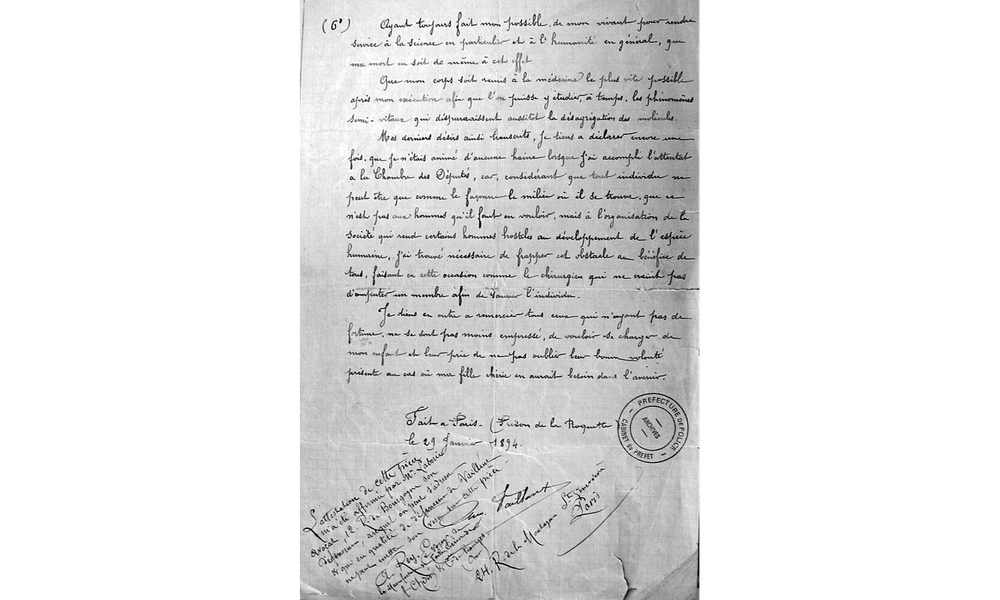 (6°) Ayant toujours fait mon possible, de mon vivant pour rendre
service à la science en particulier et à l'humanité en général, que
ma mort en soit de même à cet effet
Que mon corps soit remis à la médecine le plus vite possible
après mon exécution afin que l'on puisse y étudier, à temps, les phénomènes
semi-vitaux qui disparaissent aussitôt la désagrégation des molécules.
Mes derniers désirs ainsi transcrits, je tiens à déclarer encore une
fois, que je n'étais animé d'aucune haine lorsque j'ai accompli l'attentat
à la Chambre des Députés, car, considérant que tout individu ne
peut être que comme le façonne le milieu où il se trouve, que ce
n'est pas aux hommes qu'il faut en vouloir, mais à l'organisation de la
société qui rend certains hommes hostiles au développement de l'espèce
humaine, j'ai trouvé nécessaire de frapper cet obstacle au bénéfice de
tous, faisant en cette occasion comme le chirurgien qui ne craint pas
d'amputer un membre afin de sauver l'individu.
Je tiens en outre à remercier tous ceux qui n'ayant pas de
fortune, ne se sont pas moins empressé, de vouloir se charger de
mon enfant et leur prie de ne pas oublier leur bonne volonté
présente au cas où ma fille chérie en aurait besoin dans l'avenir.
Fait à Paris - (Prison de la Roquette)
le 29 Janvier 1894.
PREFECTURE DE POLICE
CABINET du PREFET
ARCHIVES
Vaillant
L'attestation de cette pièce
m'a été affirmée par Me Labori
avocat, 12 R. de Bourgogne son
défenseur, auquel on peut
& qui en qualité de défenseur de Vaillant
ne peut mettre son sur cette pièce
A. Rey
24 R de la
Paris